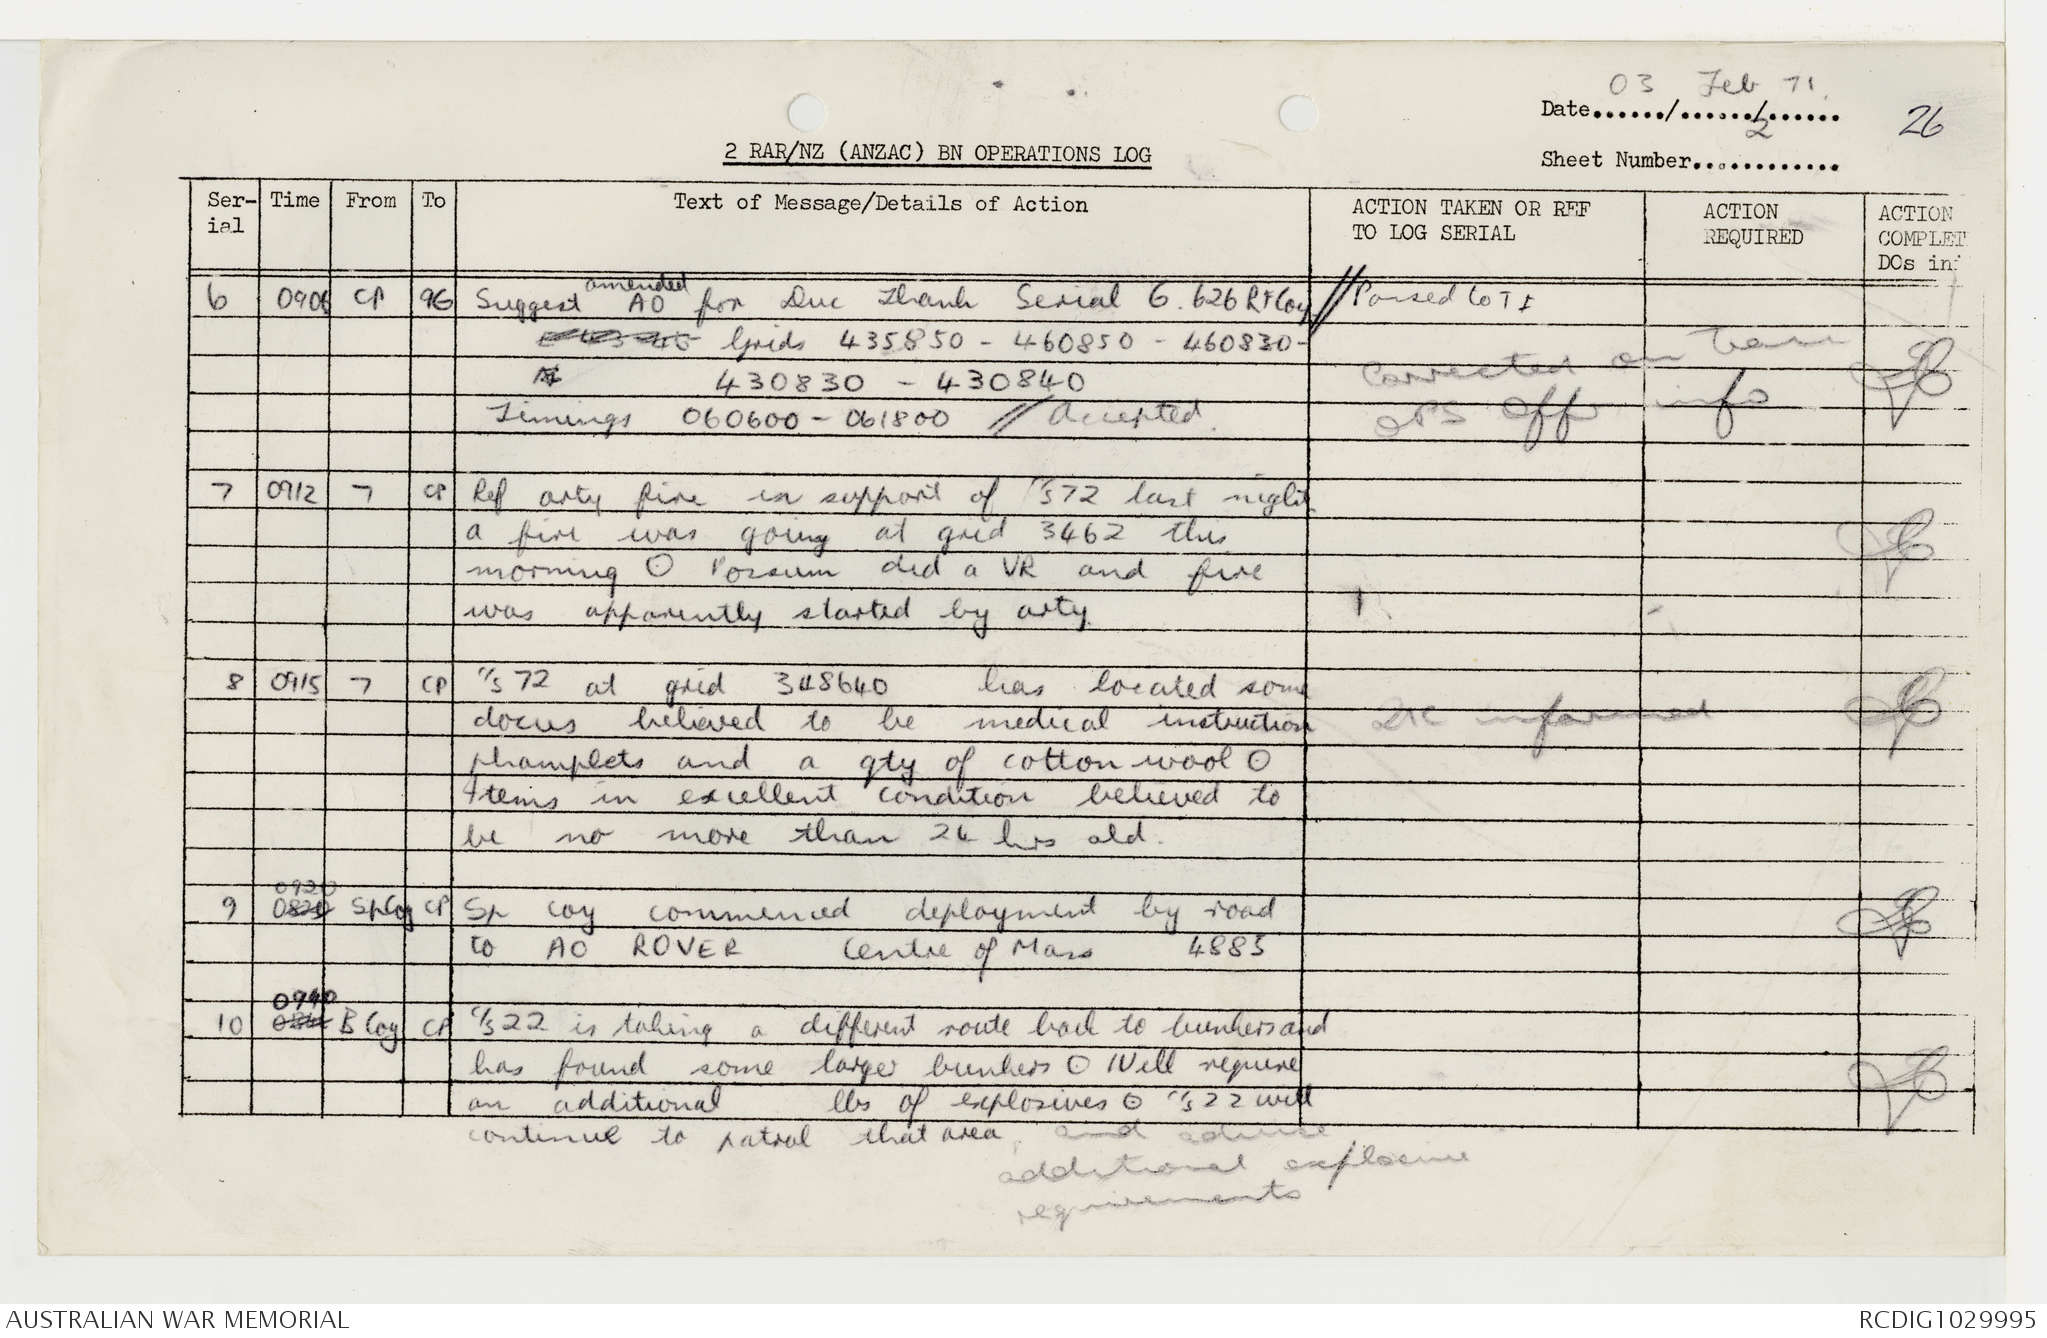 03 Feb 71.
Date....../....../......
26
2
Sheet Number............
2 RAR/NZ (ANZAC) BN OPERATIONS LOG
Ser-ial Time From To Text of Message/Details of Action ACTION TAKEN OR REF TO LOG SERIAL ACTION REQUIRED ACTION COMPLET DOs in
6 CP 96 Suggest amended AO for Duc Thanh Serial 6. 626 RF Coy // Passed to
Grids 435850 - 460850 - 460830 -
430830 - 430840
Corrected on
Timings 060600 - 061800 // Accepted.
OPS Offr info
7 0912 7 CP Ref arty fire in support of C/S 72 last night
a fire was going at grid 3462 this
morning O Possum did a VR and fire
was apparently started by arty
8 0915 7 CP C/S 72 at grid 348640 has located some
docus believed to be medical instruction 2IC informed
phamplets and a qty of cotton wool O
Items in excellent condition believed to
be no more than 24 hrs old.
0920
9 0820 Sp Coy CP Sp coy commenced deployment by road
to AO ROVER Centre of Mass 4885
0940
10 B Coy CP C/S 22 is taking a different route back to bunkers and
has found some larger bunkers O Will require
an additional lbs of explosives O C/S 22 will
continue to patrol that area and advise
additional explosive
requirements
AUSTRALIAN WAR MEMORIAL
RCDIG1029995